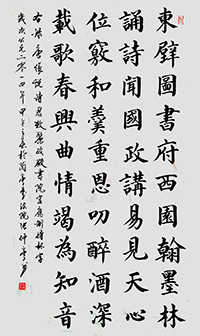 東壁圖書府西園翰墨林
誦詩聞國政講易見天心
位竊和羹重恩叨醉酒深
載歌春興曲情竭為知音
右錄唐張說詩恩敕麗政殿書院宴應制得林字
歲次公元二〇一四年甲午之春於蘭亭書法院